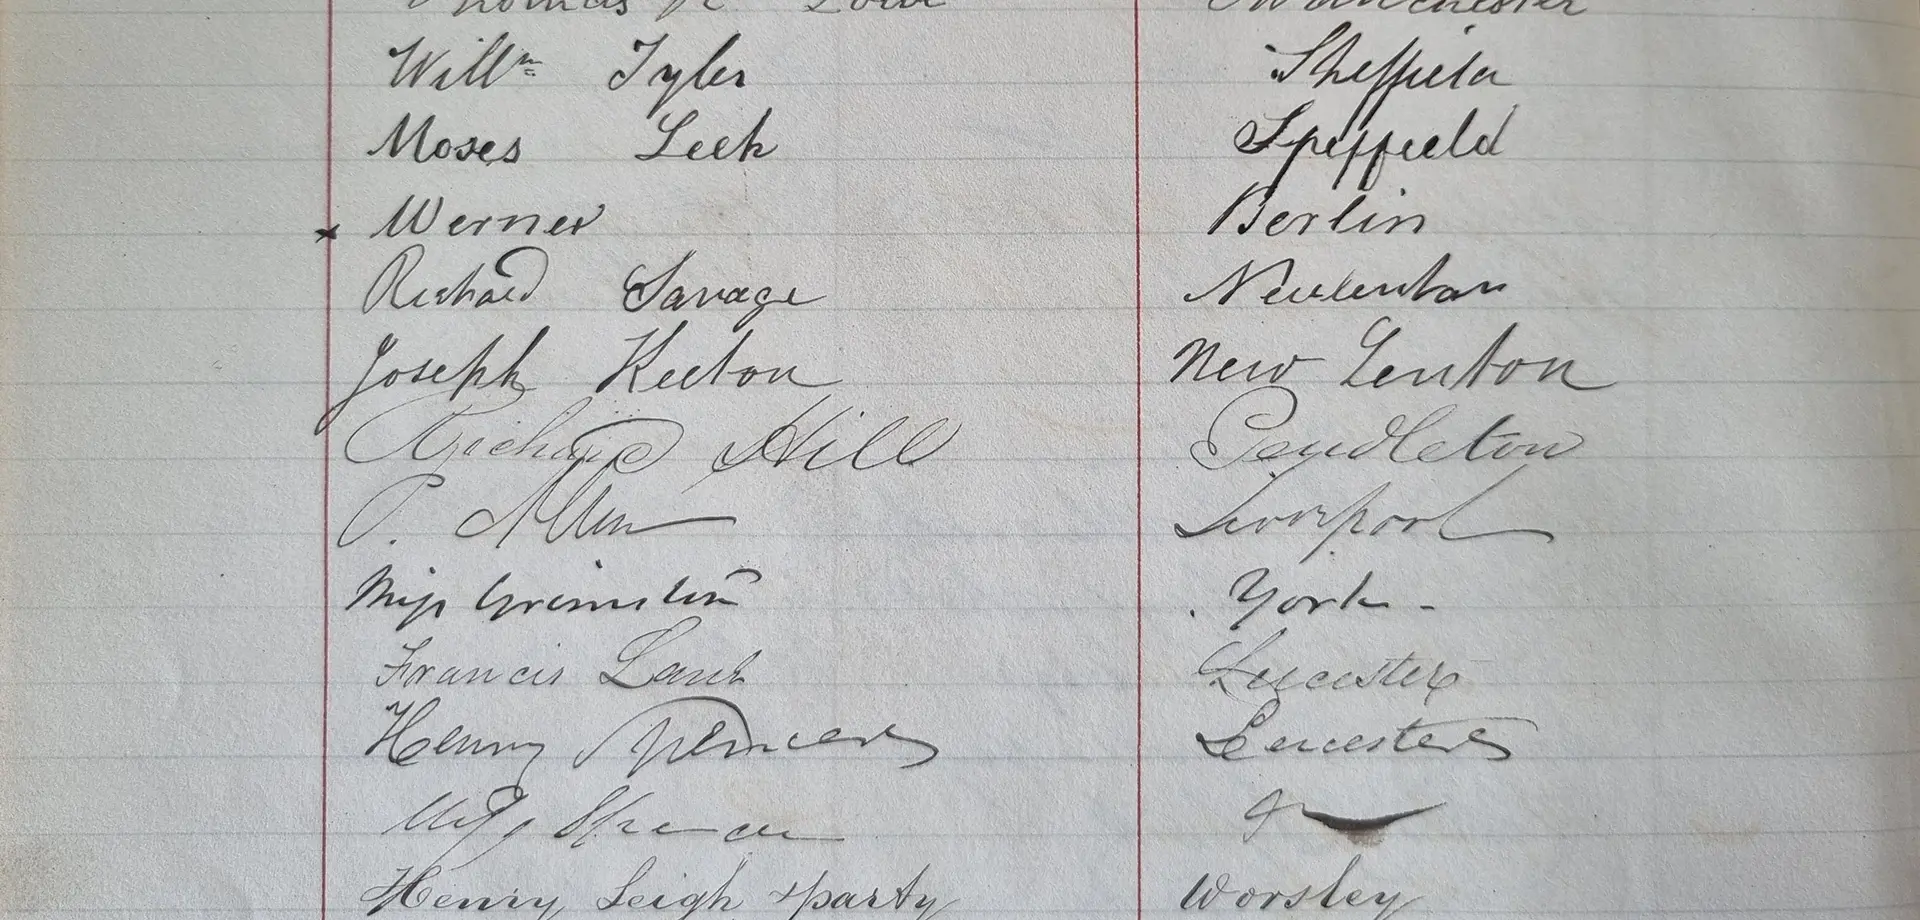 Thomas R Lowe Manchester
Will<sup>m</sup> Tyler Sheffield
Moses Leek Speffield
x Werner Berlin
Richard Savage Newlenton
Joseph Keeton New Lenton
Richard Hill Pendleton
P. Allen Liverpool
Miss Grimston York -
Francis Lamb Leicester
Henry Spencer Leicester
Spencer
Henry Leigh & party Worsley